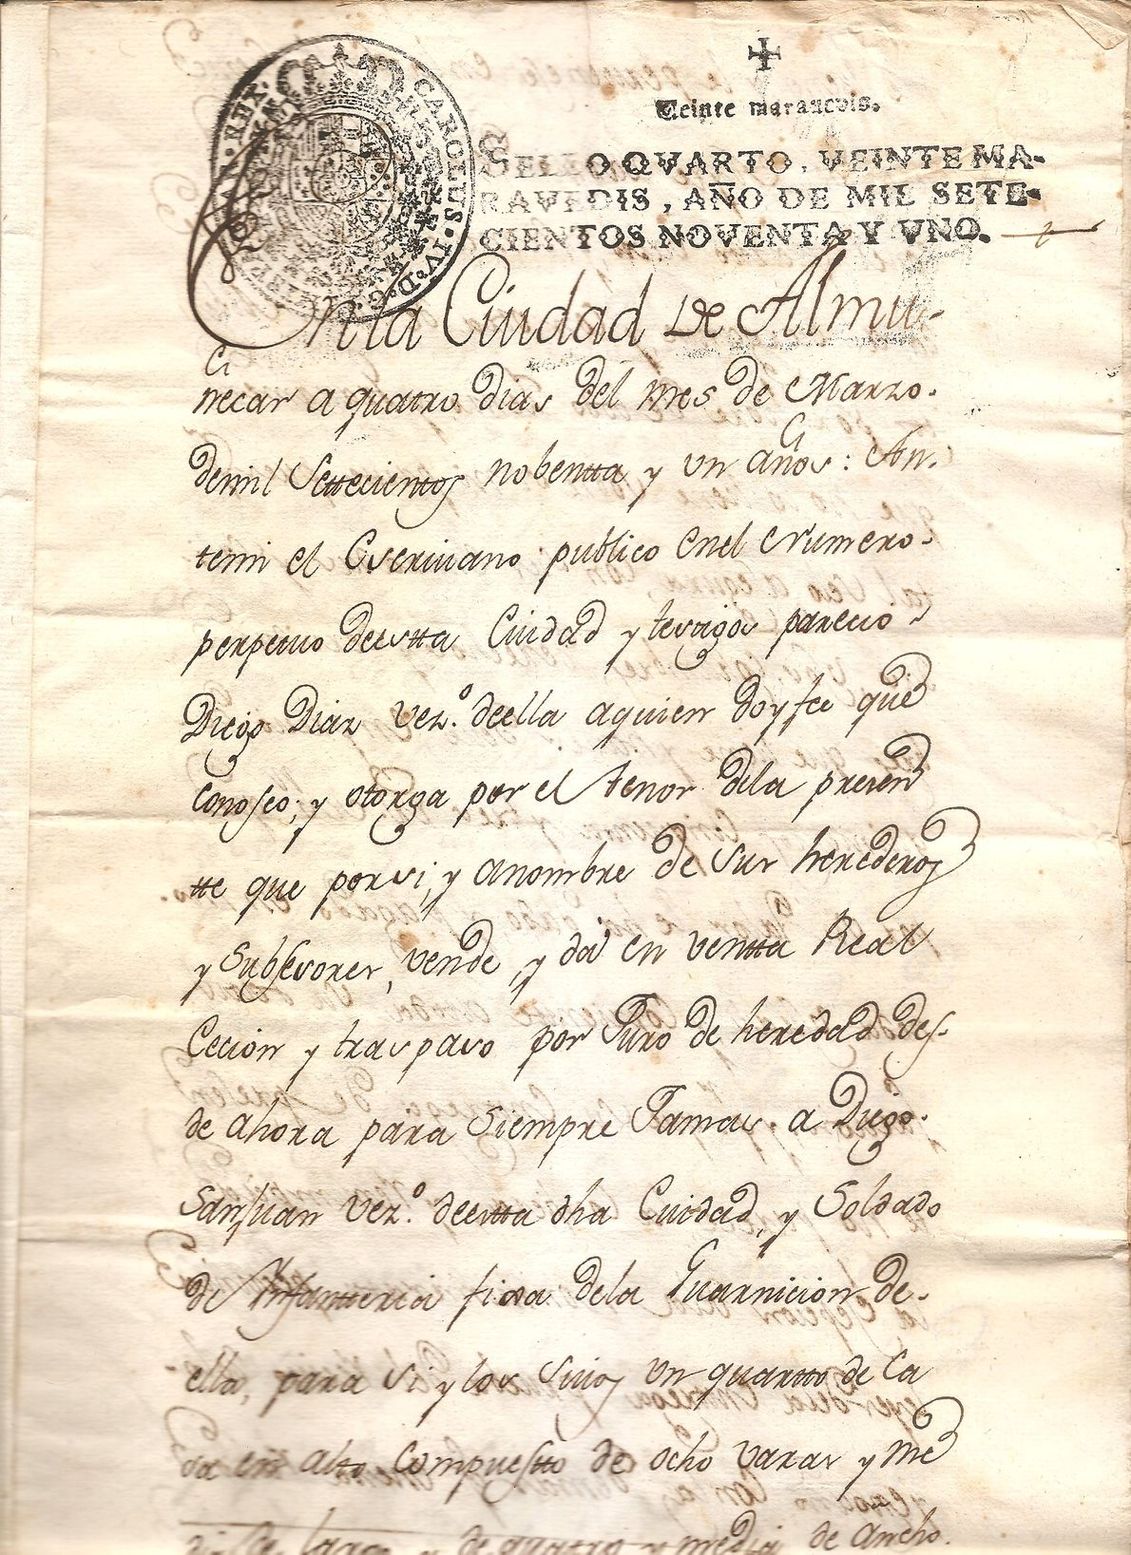 Veinte marauedis.
SELLO QVARTO, VEINTE MA-
RAVEDIS, AÑO DE MIL SETE-
CIENTOS NOVENTA Y VNO.
CAROLUS·IV·D·G·
En la Ciudad De Almu-
ñecar a quatro dias del mes de Marzo.
demil Settecientos nobentta y un años: An-
temi el Escrivano publico enel Numero
perpetuo deestta Ciudad y testigos parecio
Diego Diaz vez.º deella aquien doy fee que
Conosco; y otorga por el tenor dela presen
tte que porsi, y anombre de sus herederos
y Subsesores, vende, y dá en ventta Real
Cecion y traspaso por Juro de heredad des-
de ahora para Siempre Jamas. a Diego.
SanJuan vez.º deestta dha Ciudad, y Soldado
de Ynfantteria fixa dela Guarnicion de-
ella, para si y los suios un quartto de Ca
sa en alto Compuestto de ocho varas y me
dia de largo y de quatro y media de ancho.